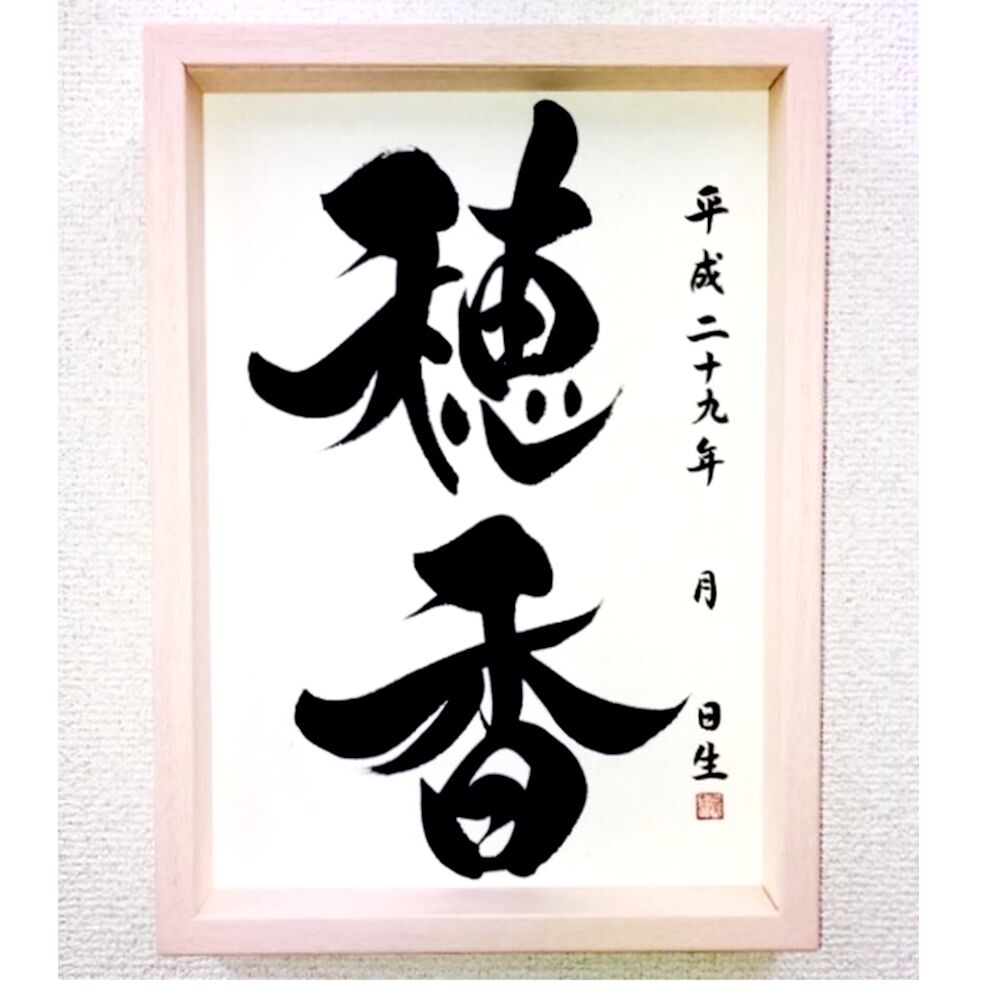 平成二十九年 月 日生
穂香